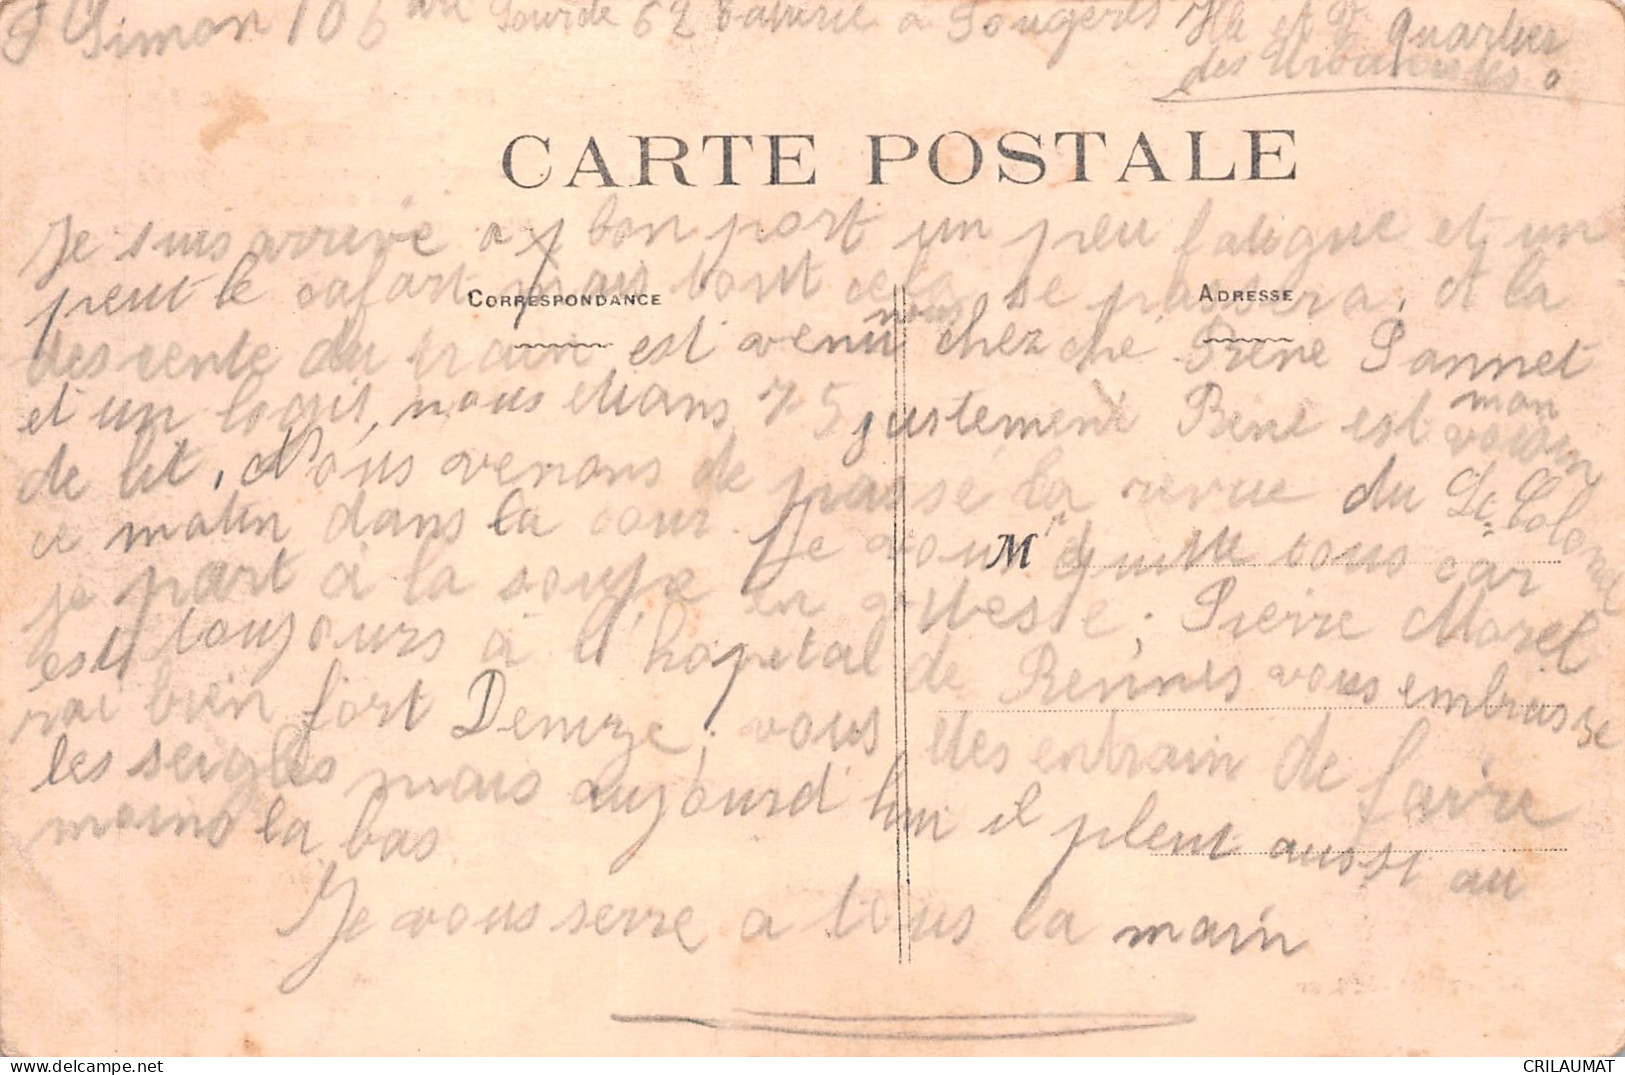 Simon 106 Lourde 62 batterie a Fougeres Ille et V. quartier
des Urbanistes
CARTE POSTALE
Je suis arrivé a bon port un peu fatigue et un
peut le cafart mais tout cela se passera, et la
CORRESPONDANCE
ADRESSE
descente du train est venu nous chez ché René Pannet
et un logis, nous etians 75 justement Réné est mon voisin
de lit, Nous venons de passé la revue du Lt Colonel
ce matin dans la cour Je vous quitte tous car
M
je part à la soupe en vitesse, Pierre Morel
est toujours à l'hopetal de Rennes vous embrasse
rai bien fort Denize, vous etes entrain de faire
les seigles mais aujourd hui il pleut aussi au
moins la bas
Je vous serre a tous la main
CRILAUMAT